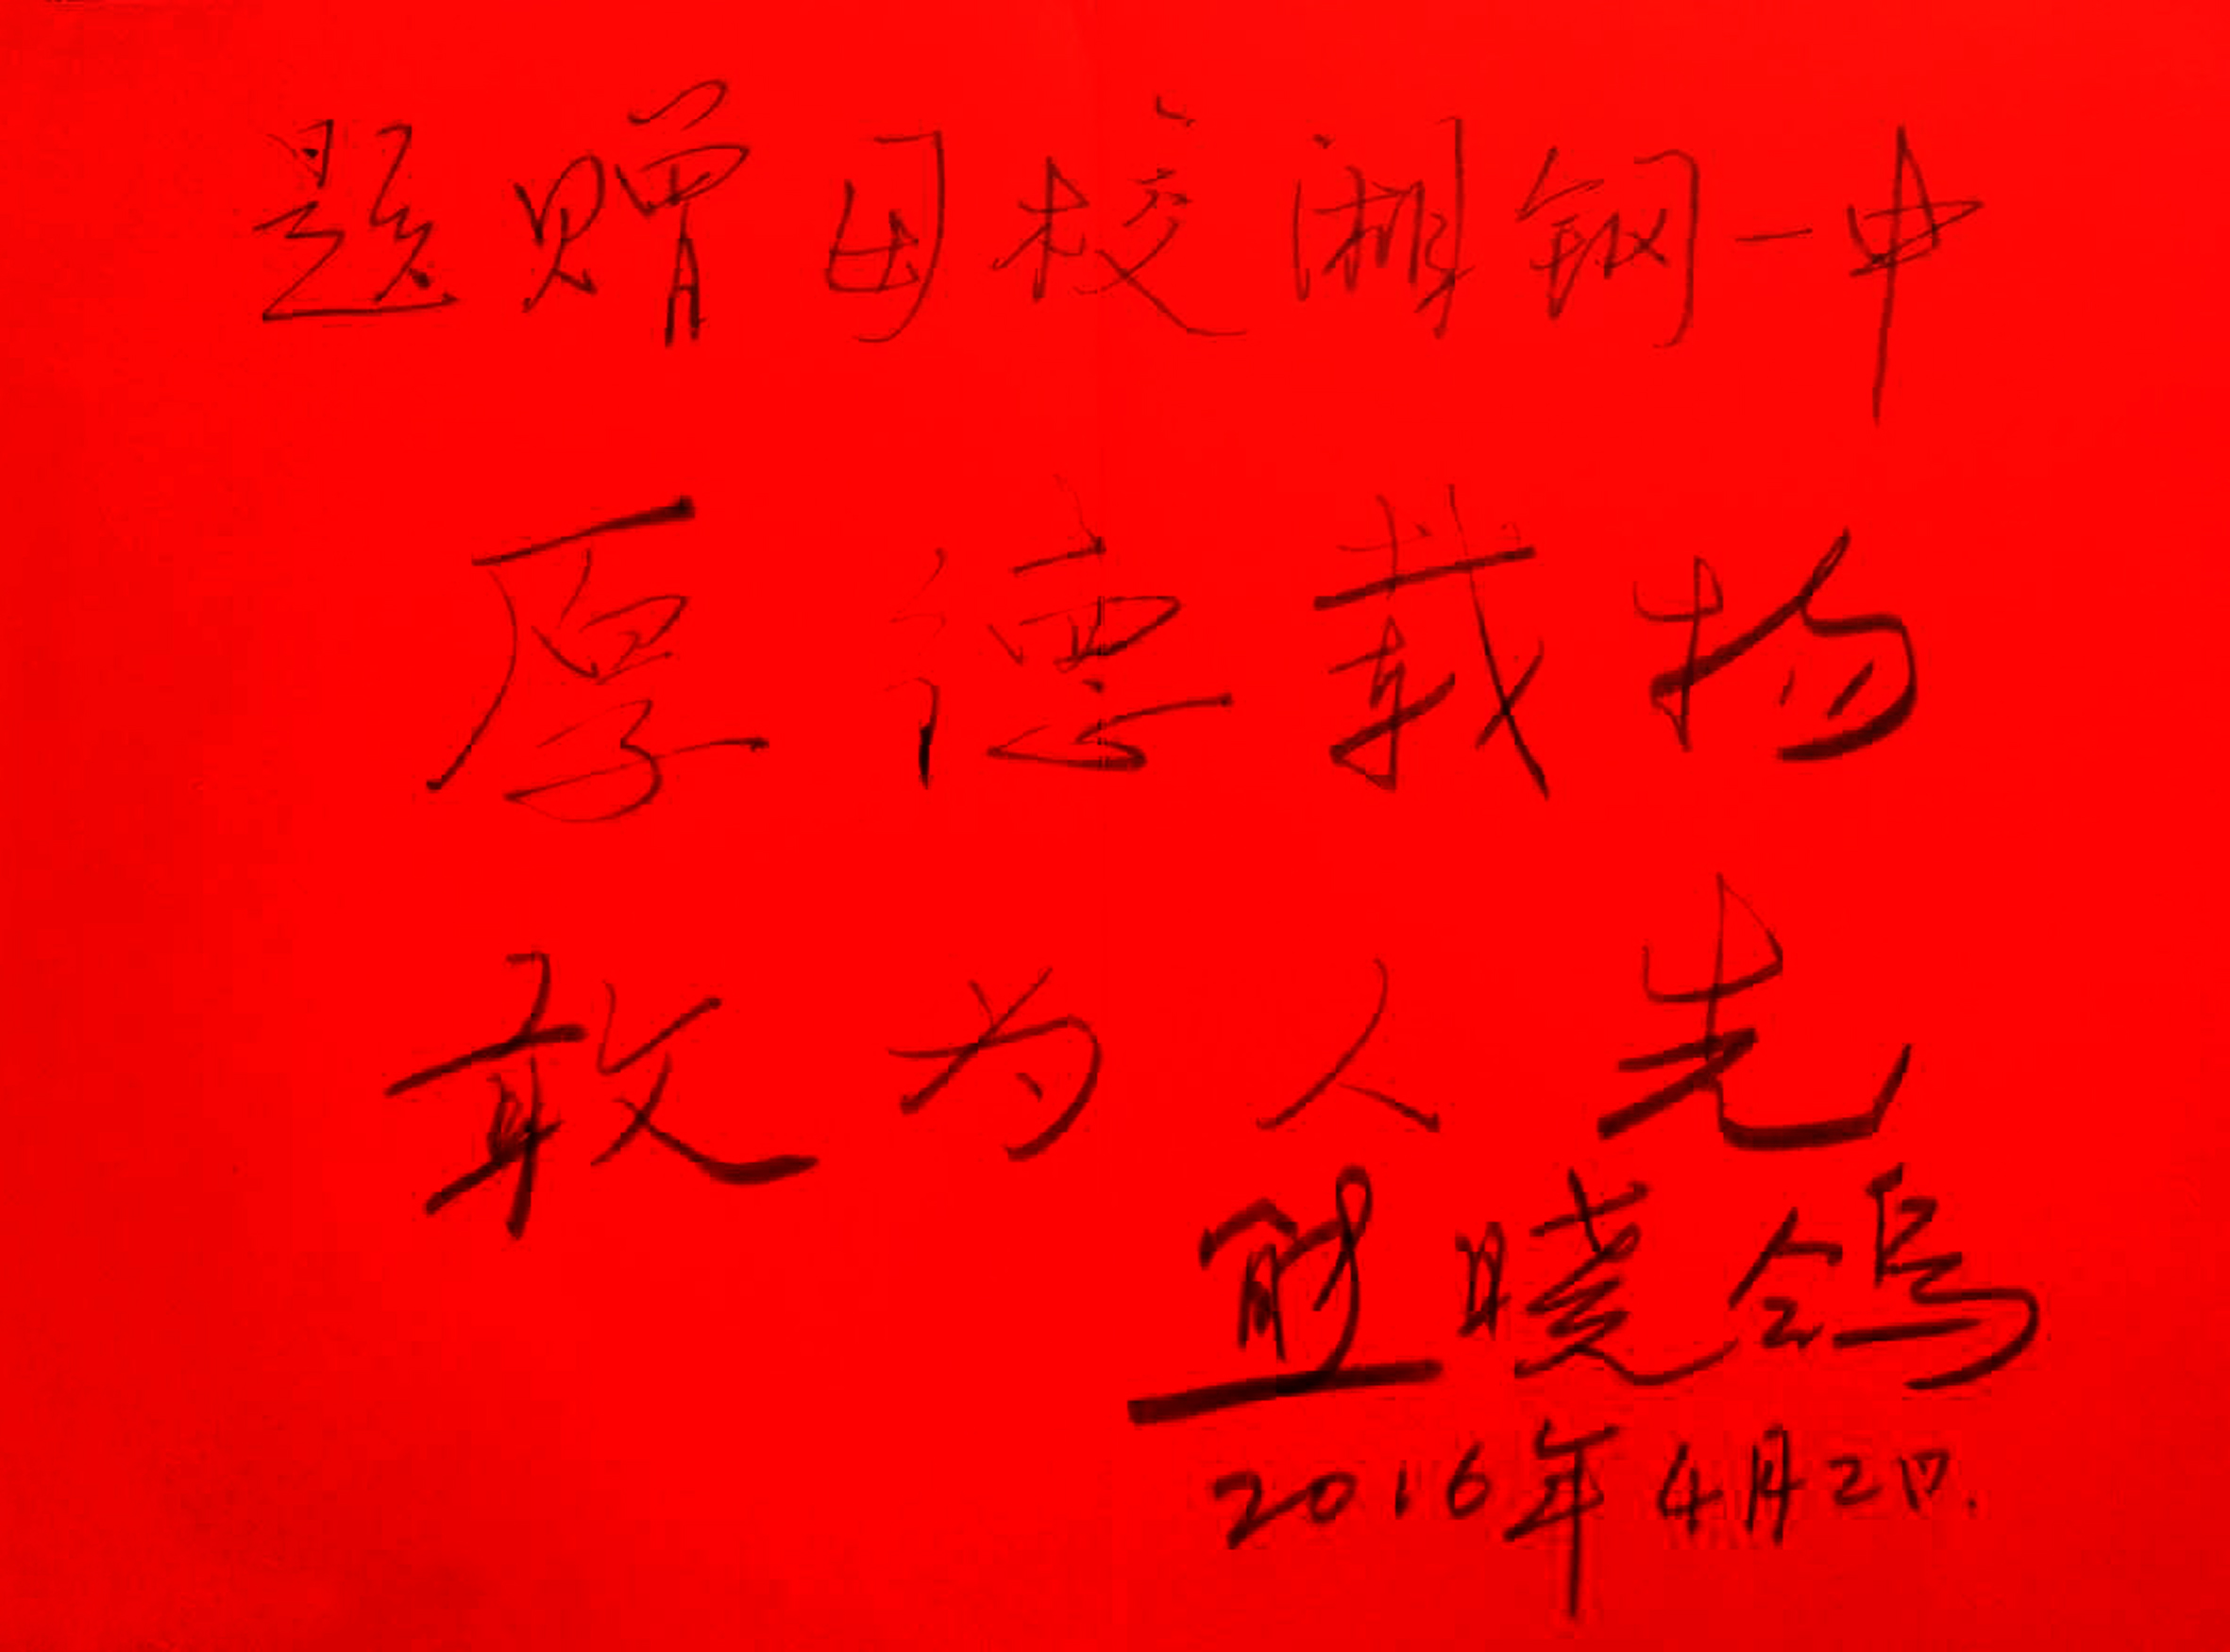 题赠母校湘钢一中
厚德载物
敢为人先
熊晓鸽
2016年4月2日.